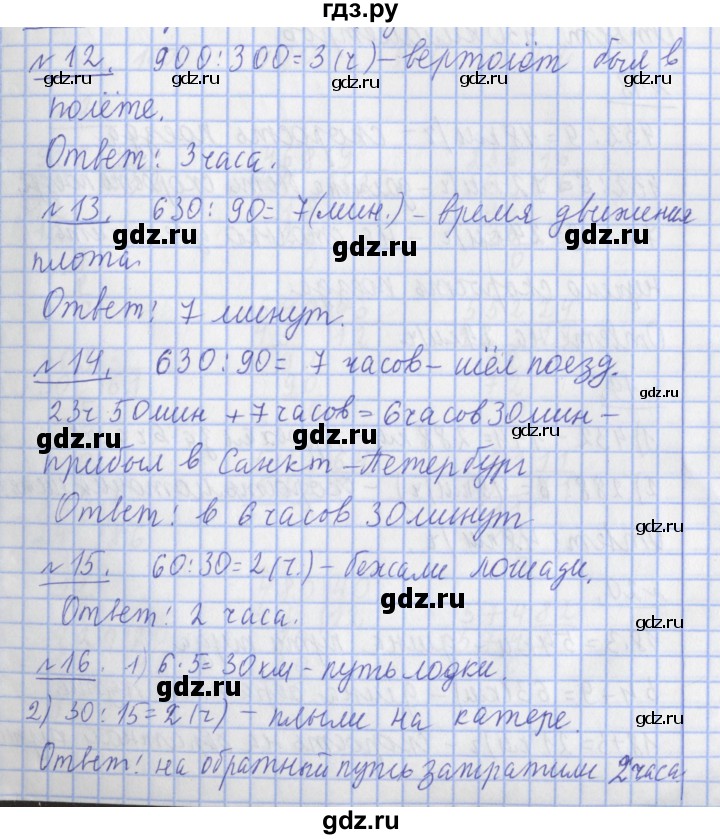 гдз.ру
№12. 900:300=3(ч)-вертолёт был в
gdz.ru gdz.ru gdz.ru gdz.ru
полёте.
Ответ: 3часа.
gdz.ru
№13. 630:90=7(мин.)-время движения
gdz.ru gdz.ru gdz.ru
плота.
Ответ: 7 минут.
№14. 630:90= 7 часов-шёл поезд.
gdz.ru
23ч 50мин +7часов=6часов30мин-
gdz.ru gdz.ru gdz.ru
прибыл в Санкт-Петербург
Ответ: в 6часов 30минут
gdz.ru
№15. 60:30=2(ч.)-бежали лошади.
Ответ: 2 часа.
gdz.ru
№16. 1) 6·5=30км-путь лодки.
gdz.ru
2) 30:15=2(ч)-плыли на катере.
gdz.ru
Ответ: на обратный путь затратили 2часа.
gdz.ru gdz.ru
gdz.ru